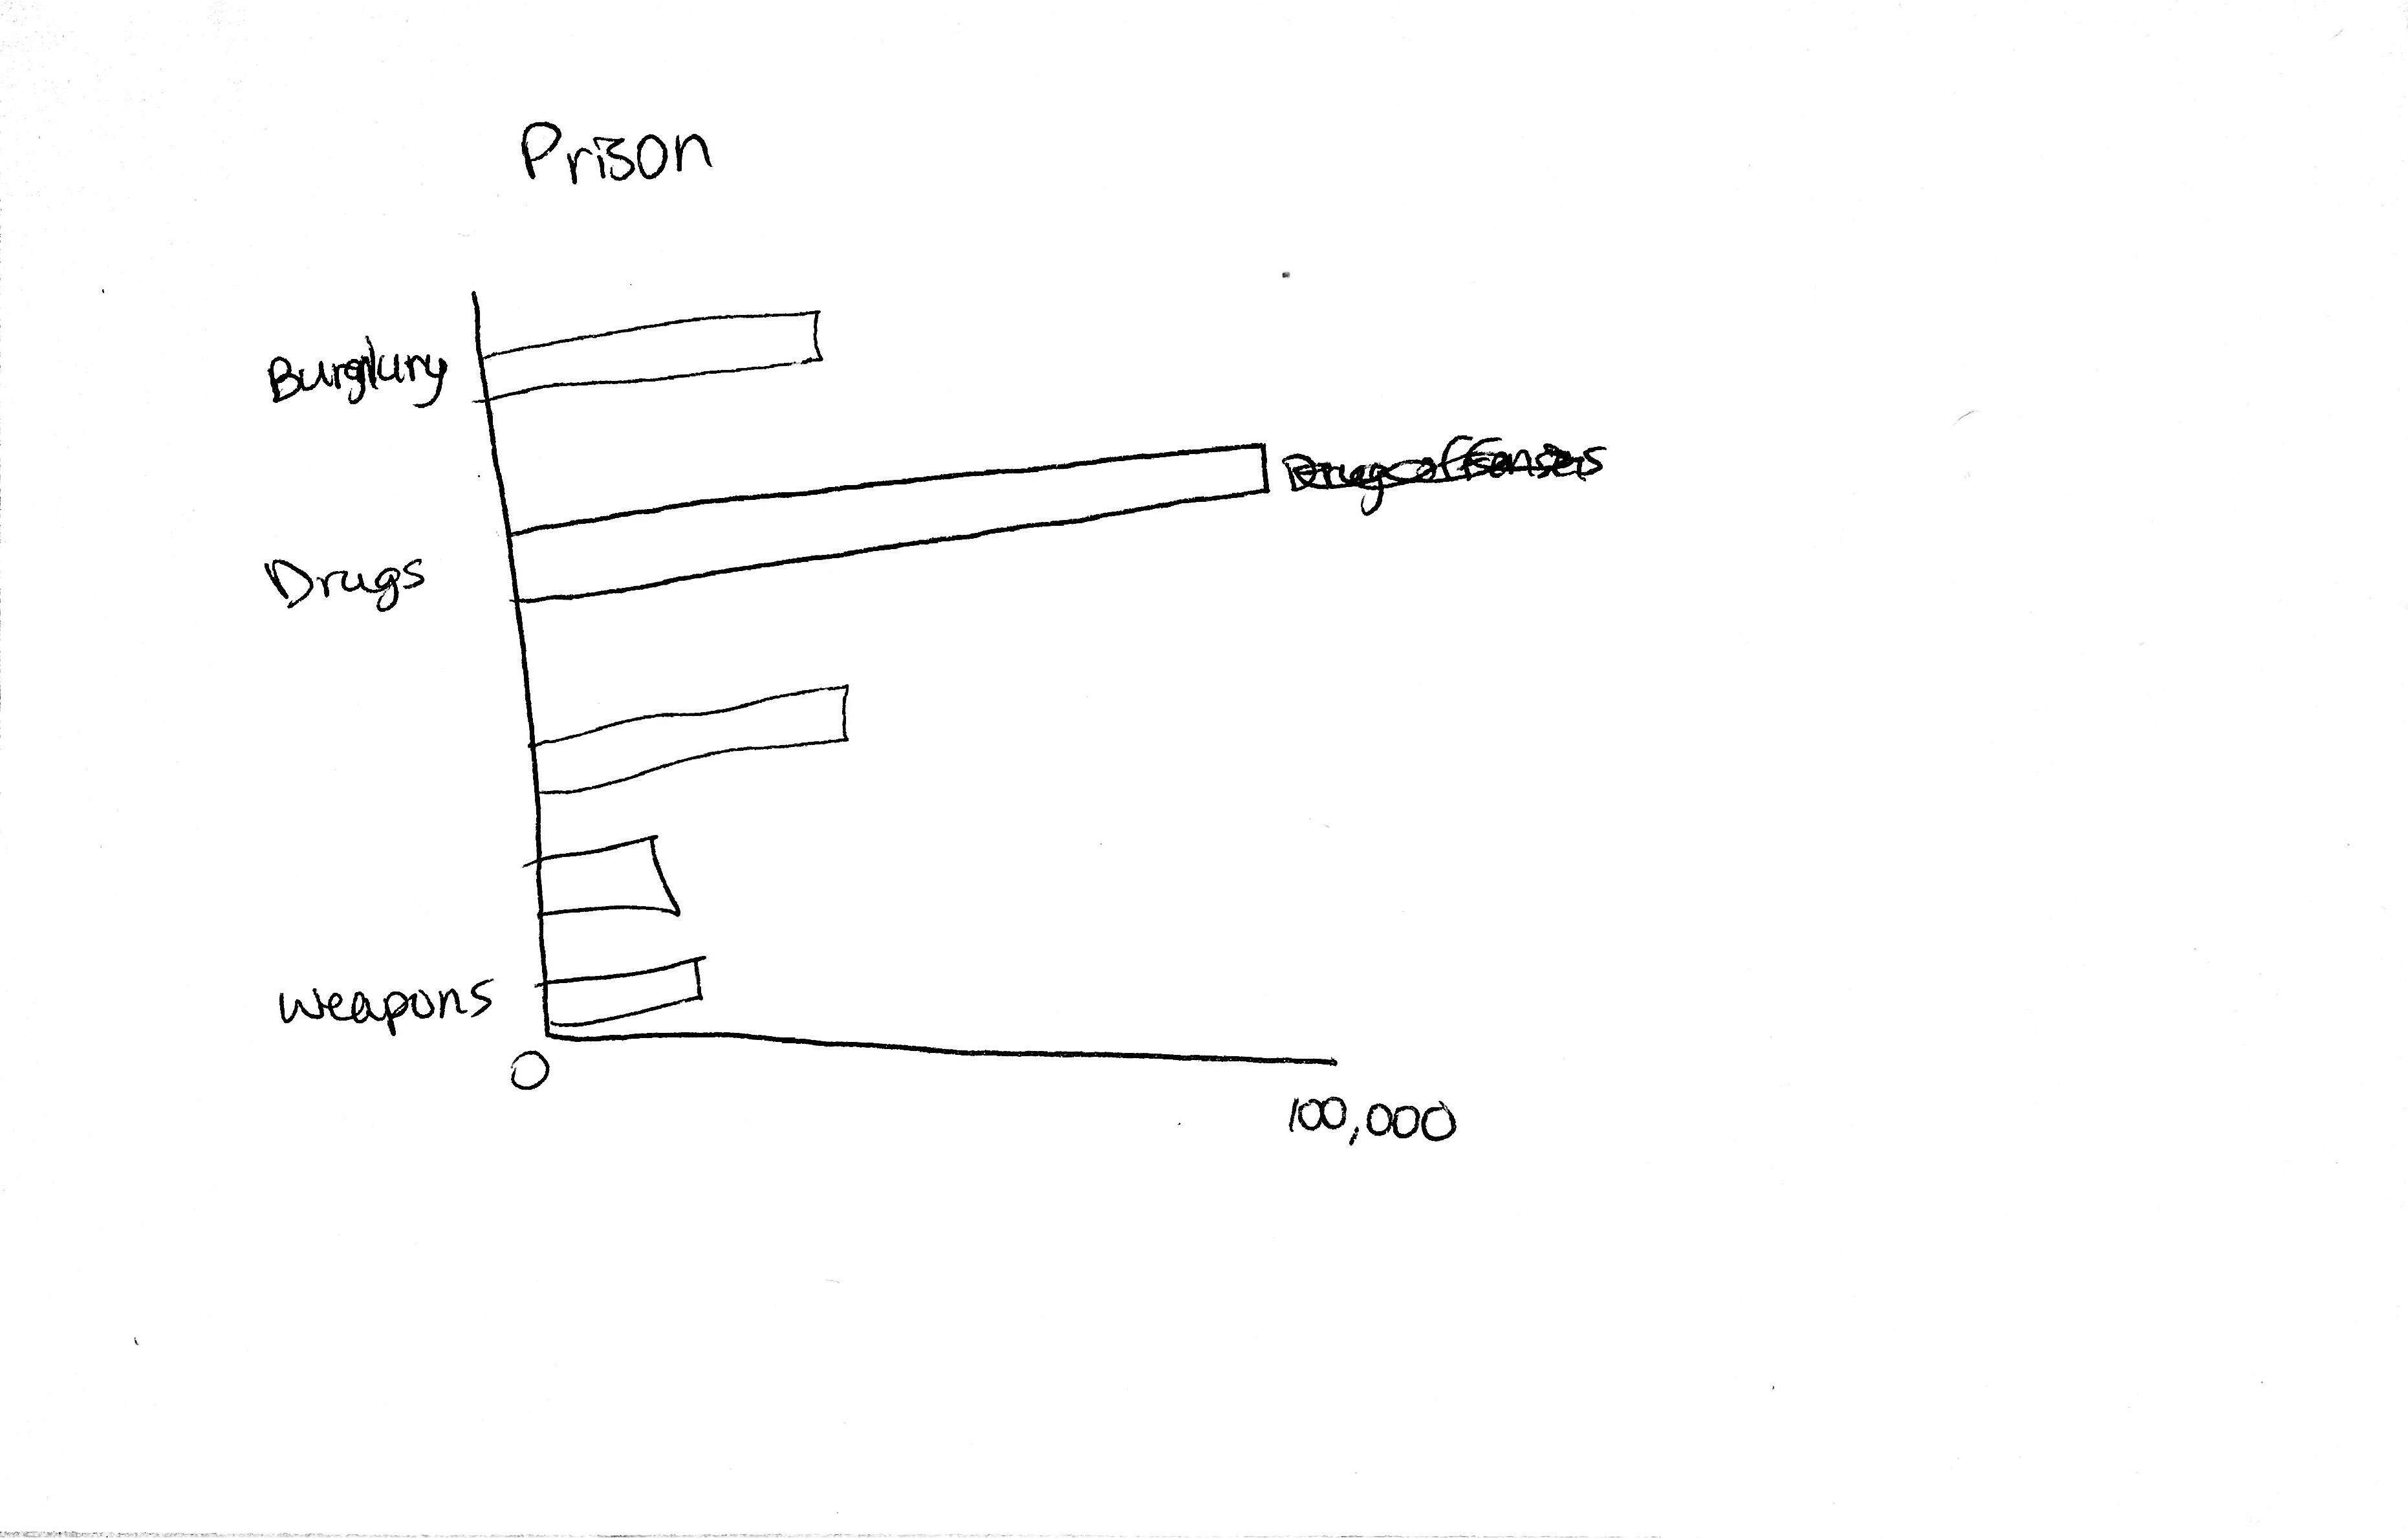 Prison
Burglury
Drug offenses
Drugs
Weapons
0
100,000